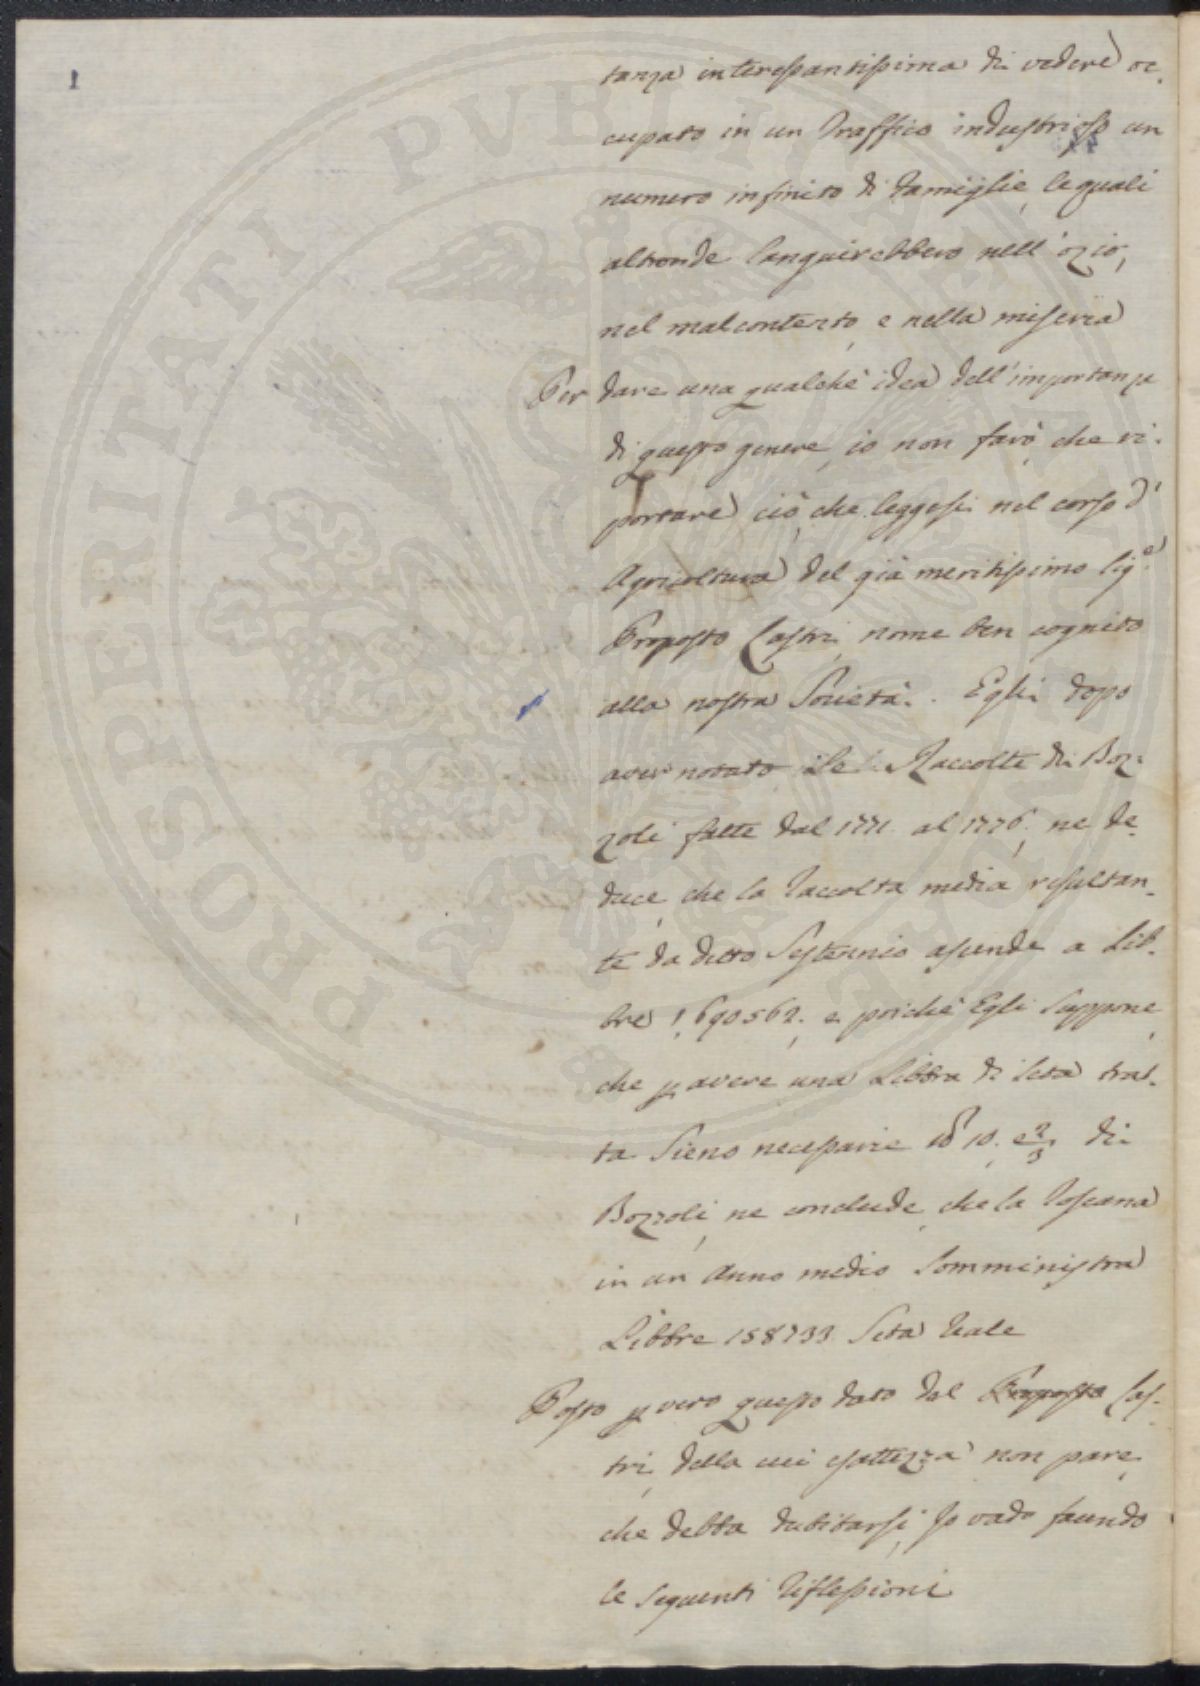 1
tanza interessantissima di vedere oc-
cupato in un Traffico industrioso un
numero infinito di Famiglie, le quali
altronde languirebbero nell'ozio,
nel malcontento, e nella miseria
Per dare una qualche idea dell'importanza
di questo genere, io non farò, che ri-
portare ciò, che leggesi nel corso d'
Agricoltura del già meritissimo Sig.e
Proposto Lastri, nome ben cognito
alla nostra Società. Egli dopo
aver notato le Raccolte di Boz-
zoli fatte dal 1771. al 1776., ne de-
duce, che la raccolta media resultan-
te da detto Sestennio ascende a Lib-
bre 1,690562., e poichè Egli suppone,
che p avere una Libbra di seta trat-
ta sieno necessarie lb 10. e 2/3 di
Bozzoli, ne conclude, che la Toscana
in un Anno medio somministra
Libbre 158733 Seta reale
Posto p vero questo dato dal Proposto Las-
tri, della cui esattezza non pare,
che debba dubitarsi, Io vado facendo
le seguenti riflessioni
PROSPERITATI PUBLICAE